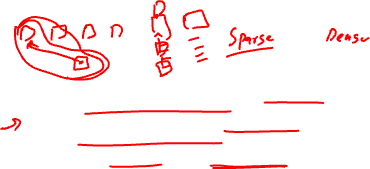 Sparse Dense